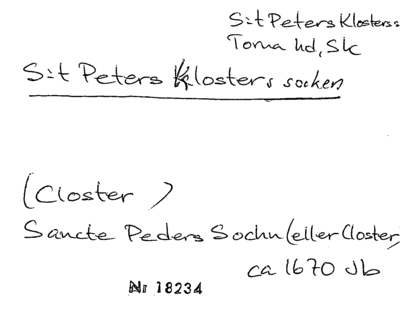 S:t Peters Klosters s
Torna hd, Sk
S:t Peters Klosters socken
(Closter )
Sancte Peders Sochn (eller Closter)
ca 1670 Jb
Nr 18234